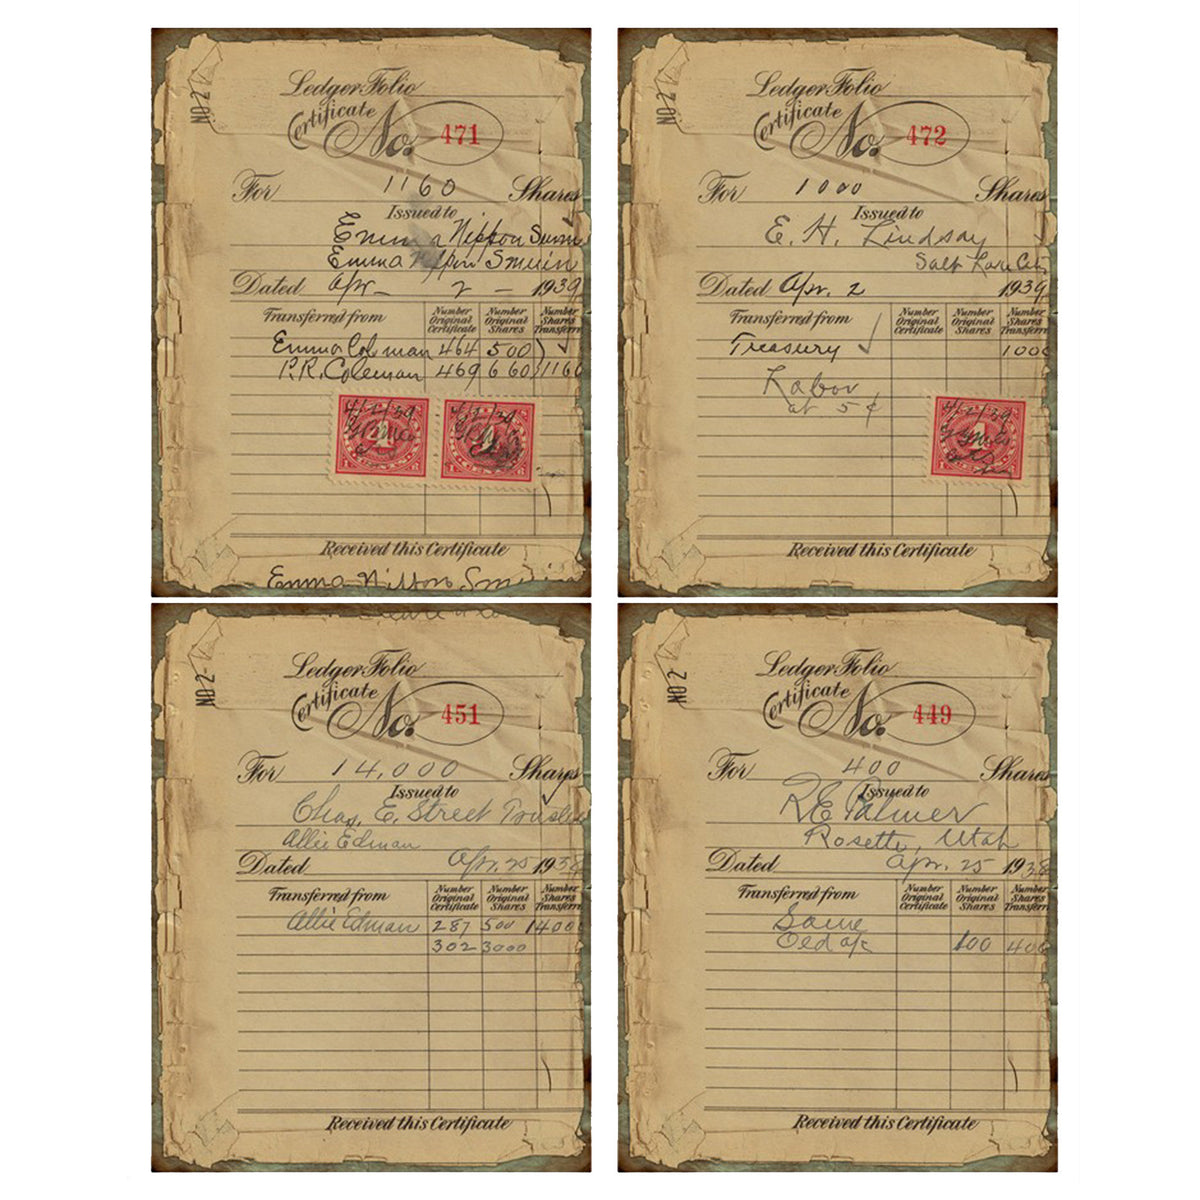 NO 2
Ledger Folio
Certificate No. 471
For 1160 Shares
Issued to
Emma Nippon
Emma Nippon Smuin
Dated Apr- 2 - 1939
Transferred from Number Original Certificate Number Original Shares Number Shares Transferre
Emma Coleman 464 500
P.R. Coleman 469 660 1160
4/2/39 4/2/39
4 4
CENTS
Received this Certificate
Emma Nippon Smuin
NO 2
Ledger Folio
Certificate No. 472
For 1000 Shares
Issued to
E. H. Lindsay
Salt Lake City
Dated Apr. 2 1939
Transferred from Number Original Certificate Number Original Shares Number Shares Transferre
Treasury 1000
Labor
at 5¢
4/2/39
Received this Certificate
NO 2-
Ledger Folio
Certificate No. 451
For 14,000 Shares
Issued to
Chas. E. Street Trustee
Allie Edman
Dated Apr. 25 1938
Transferred from Number Original Certificate Number Original Shares Number Shares Transferre
Allie Edman 287 500 14000
302 3000
Received this Certificate
NO 2
Ledger Folio
Certificate No. 449
For 400 Shares
Issued to
R E Palmer
Rosette, Utah
Dated Apr. 25 1938
Transferred from Number Original Certificate Number Original Shares Number Shares Transferrer
Same
Old a/c 100 400
Received this Certificate